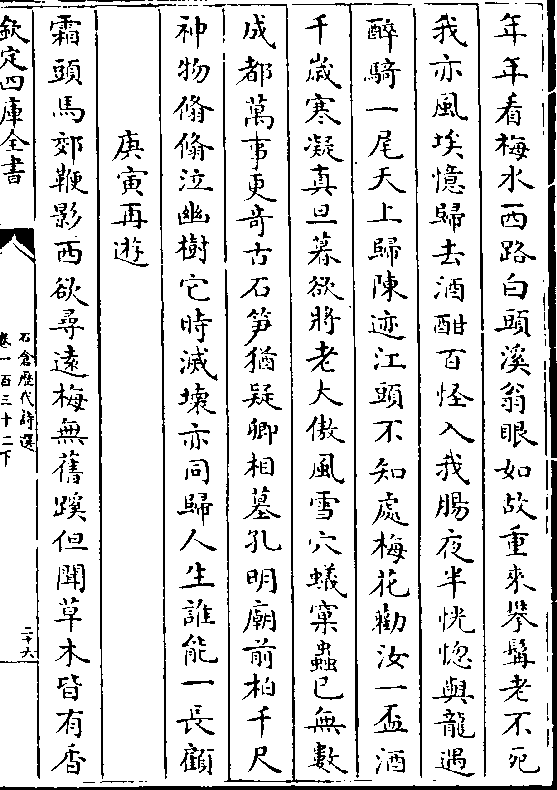 年年看梅水西路白頭溪翁眼如故重來攀髯老不死
我亦風埃憶歸去酒酣百怪入我腸夜半恍惚與龍遇
醉騎一尾天上歸陳迹江頭不知處梅花勸汝一盃酒
千歲寒凝真旦暮欲將老大傲風雪穴蟻窠蟲已無數
成都萬事更奇古石笋猶疑卿相墓孔明廟前柏千尺
神物翛翛泣幽樹它時滅壞亦同歸人生誰能一長顧
庚寅再遊
霜頭馬郊鞭影西欲尋遠梅無舊蹊但聞草木皆有香
欽定四庫全書
石倉歷代詩選
卷一百三十二下
二十六